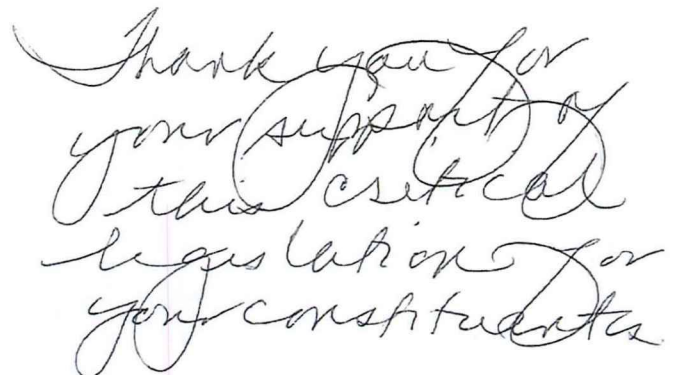 Thank you for
your support of
this critical
legislation for
your constituents